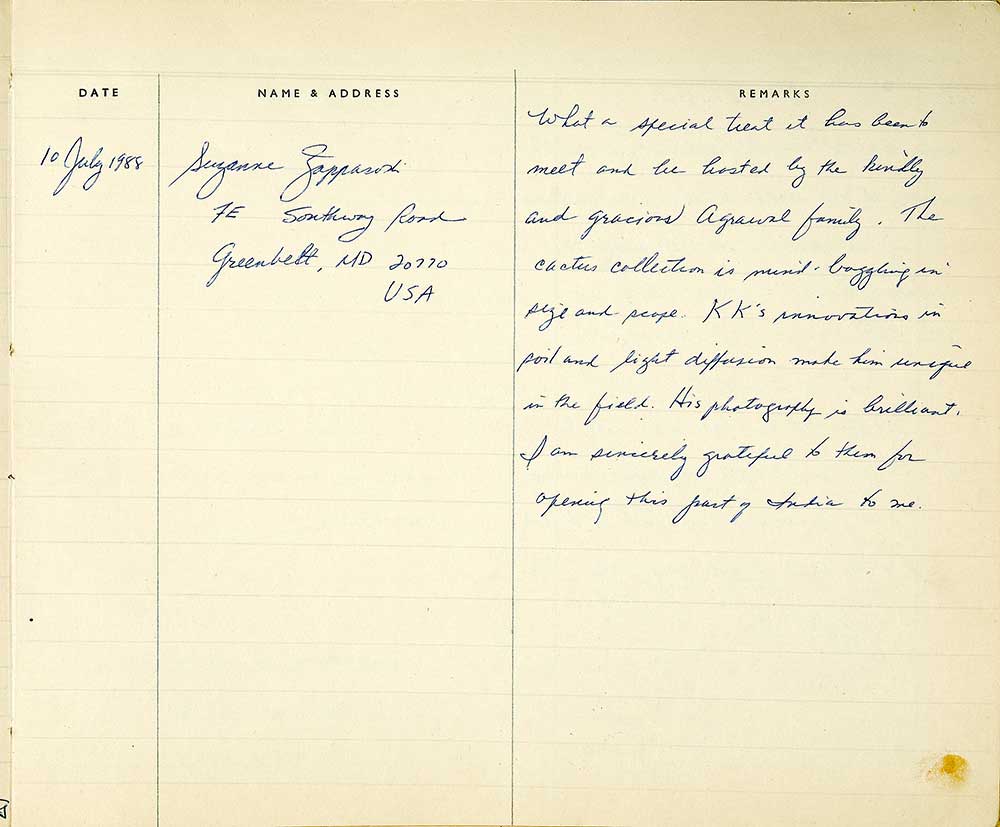 DATE
NAME & ADDRESS
REMARKS
10 July 1988
Suzanne
7E Southway Road
Greenbelt, MD 20770
USA
What a special treat it has been to
meet and be hosted by the kindly
and gracious Agrawal family. The
cactus collection is mind-boggling in
size and scope. KK's innovations in
soil and light diffusion make him unique
in the field. His photography is brilliant.
I am sincerely grateful to them for
opening this part of India to me.